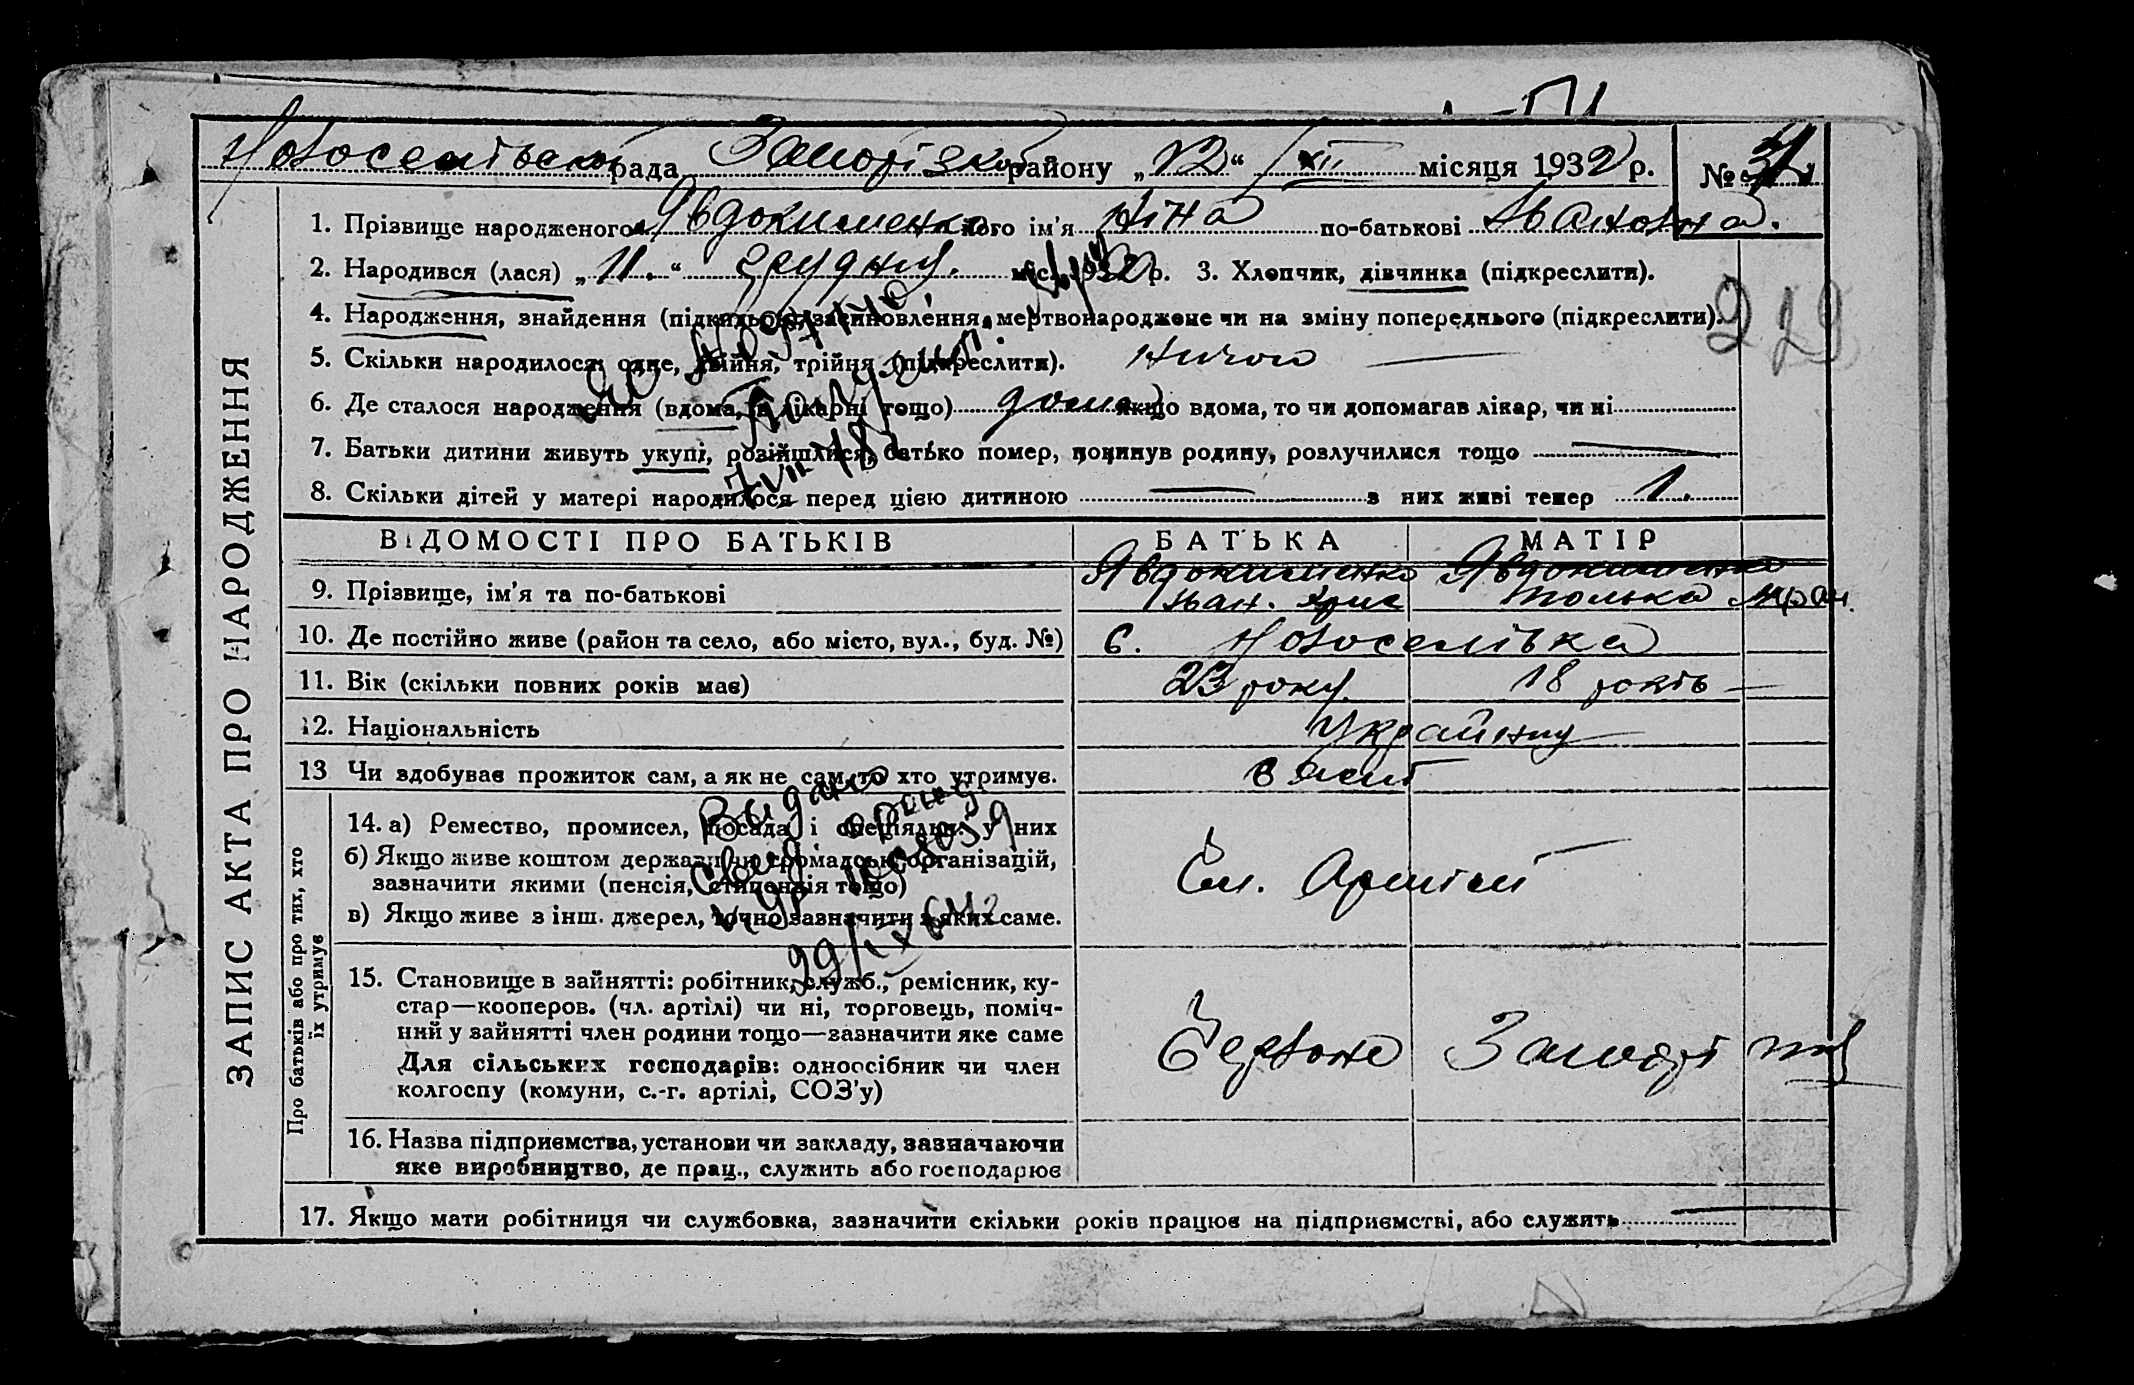 Новосельською рада Запорізького району „12“ XII місяця 1932 р. №
1. Прізвище народженого Явдокименко його ім'я Ніна по-батькові Івановна.
2. Народився (лася) „11.“ грудня. міс. 1932 р. 3. Хлопчик, дівчинка (підкреслити).
4. Народження, знайдення (підкидьок), засиновлення, мертвонароджене чи на зміну попереднього (підкреслити).
229
5. Скільки народилося: одне, двійня, трійня (підкреслити).
6. Де сталося народження (вдома, в лікарні тощо) дома якщо вдома, то чи допомагав лікар, чи ні
7. Батьки дитини живуть укупі, розійшлися, батько помер, покинув родину, розлучилися тощо —
8. Скільки дітей у матері народилося перед цією дитиною — з них живі тепер 1.
ВІДОМОСТІ ПРО БАТЬКІВ БАТЬКА МАТІР
9. Прізвище, ім'я та по-батькові Явдокименко Іван. Явдокименко
10. Де постійно живе (район та село, або місто, вул., буд. №) с. Новоселівка
11. Вік (скільки повних років має) 23 року 18 років —
12. Національність Українці
13 Чи здобуває прожиток сам, а як не сам, то хто утримує.
14. а) Ремество, промисел, посада і спеціяльн. у них
б) Якщо живе коштом держави чи громадськ. організацій,
зазначити якими (пенсія, стипендія тощо)
в) Якщо живе з інш. джерел, точно зазначити з яких саме.
Чл. Артілі
Видано
свид.
29/IX
15. Становище в зайнятті: робітник, служб., ремісник, ку-
стар—кооперов. (чл. артілі) чи ні, торговець, поміч-
ний у зайнятті член родини тощо—зазначити яке саме
Для сільських господарів: одноосібник чи член
колгоспу (комуни, с.-г. артілі, СОЗ'у)
Червоне
16. Назва підприємства, установи чи закладу, зазначаючи
яке виробництво, де прац., служить або господарює
17. Якщо мати робітниця чи службовка, зазначити скільки років працює на підприємстві, або служить —
ЗАПИС АКТА ПРО НАРОДЖЕННЯ
Про батьків або про тих, хто
їх утримує